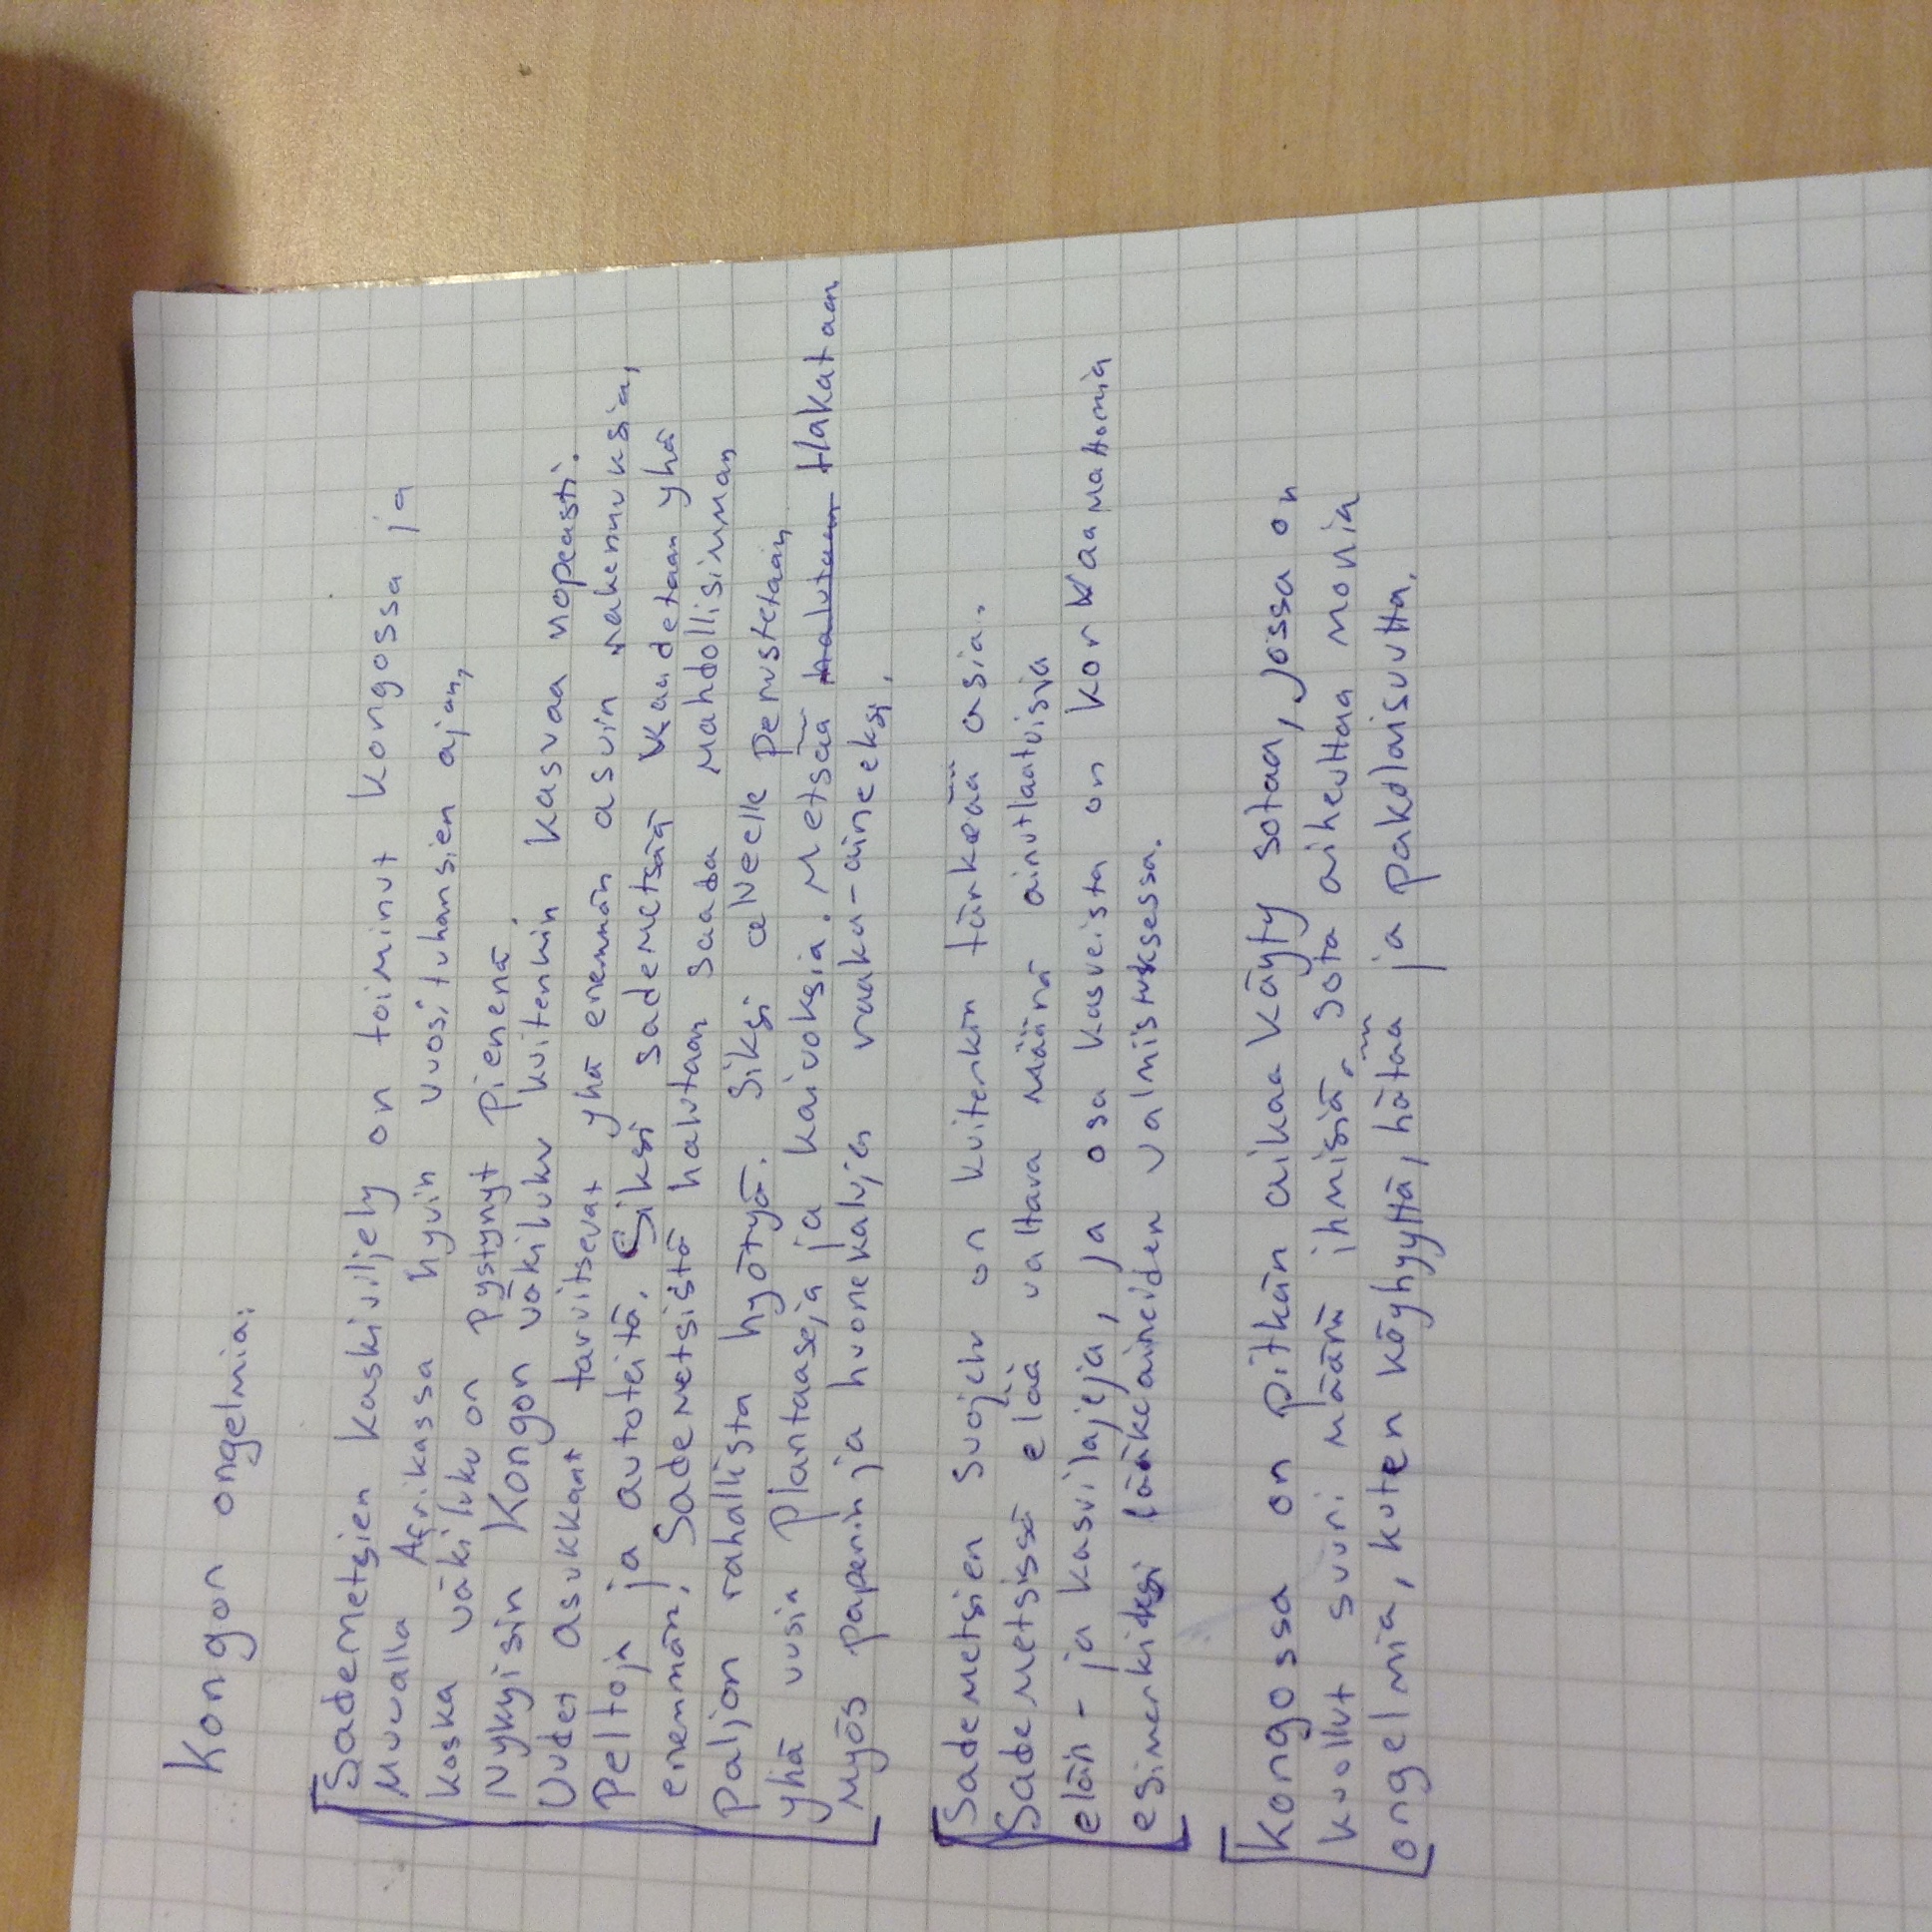 Kongon ongelmia:
Sademetsien kaskiviljely on toiminut Kongossa ja
Muualla Afrikassa hyvin vuosituhansien ajan,
koska väkiluku on pystynyt pienenä.
Nykyisin Kongon väkiluku kuitenkin kasvaa nopeasti.
Uudet asukkaat tarvitsevat yhä enemmän asuin rakennuksia,
Peltoja ja autoteitä. Siksi sademetsää kaadetaan yhä
enemmän. Sademetsistä halutaan saada mahdollisimman
Paljon rahallista hyötyä. Siksi alueelle perustetaan
yhä uusia Plantaaseja ja kaivoksia. Metsää halutaan Hakataan
Myös paperin ja huonekaluja raaka-aineeksi.
Sademetsien suojelu on kuitenkin tärkeää asia.
Sademetsissä elää valtava määrä ainutlaatuisia
eläin- ja kasvilajeja, ja osa kasveista on korkaamattomia
esimerkidksi lääkeaineiden valmistuksessa.
Kongossa on pitkän aikaa käyty sotaa, jossa on
kuollut suuri määrä ihmisiä. Sota aiheuttaa monia
ongelmia, kuten köyhyyttä, hätää ja pakolaisuutta.